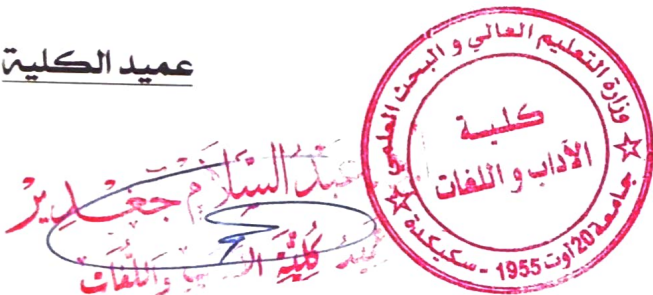 عميد الكلية
وزارة التعليم العالي و البحث العلمي
كليـــة
الآداب و اللغات
جامعة 20 أوت 1955 - سكيكدة
عبد السلام جغدير
عميد كلية الآداب واللغات